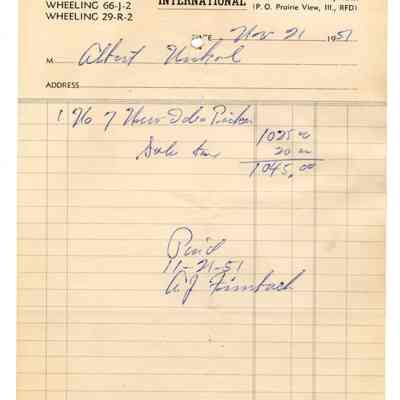 WHEELING 66-J-2
INTERNATIONAL (P. O. Prairie View, Ill., RFD1
WHEELING 29-R-2
DATE Nov 21 1951
M Albert
ADDRESS
1 No 7 New Idea Picker 1025.00
Sale tax 20.00
1045.00
Paid
11-21-51
A J Fimbach